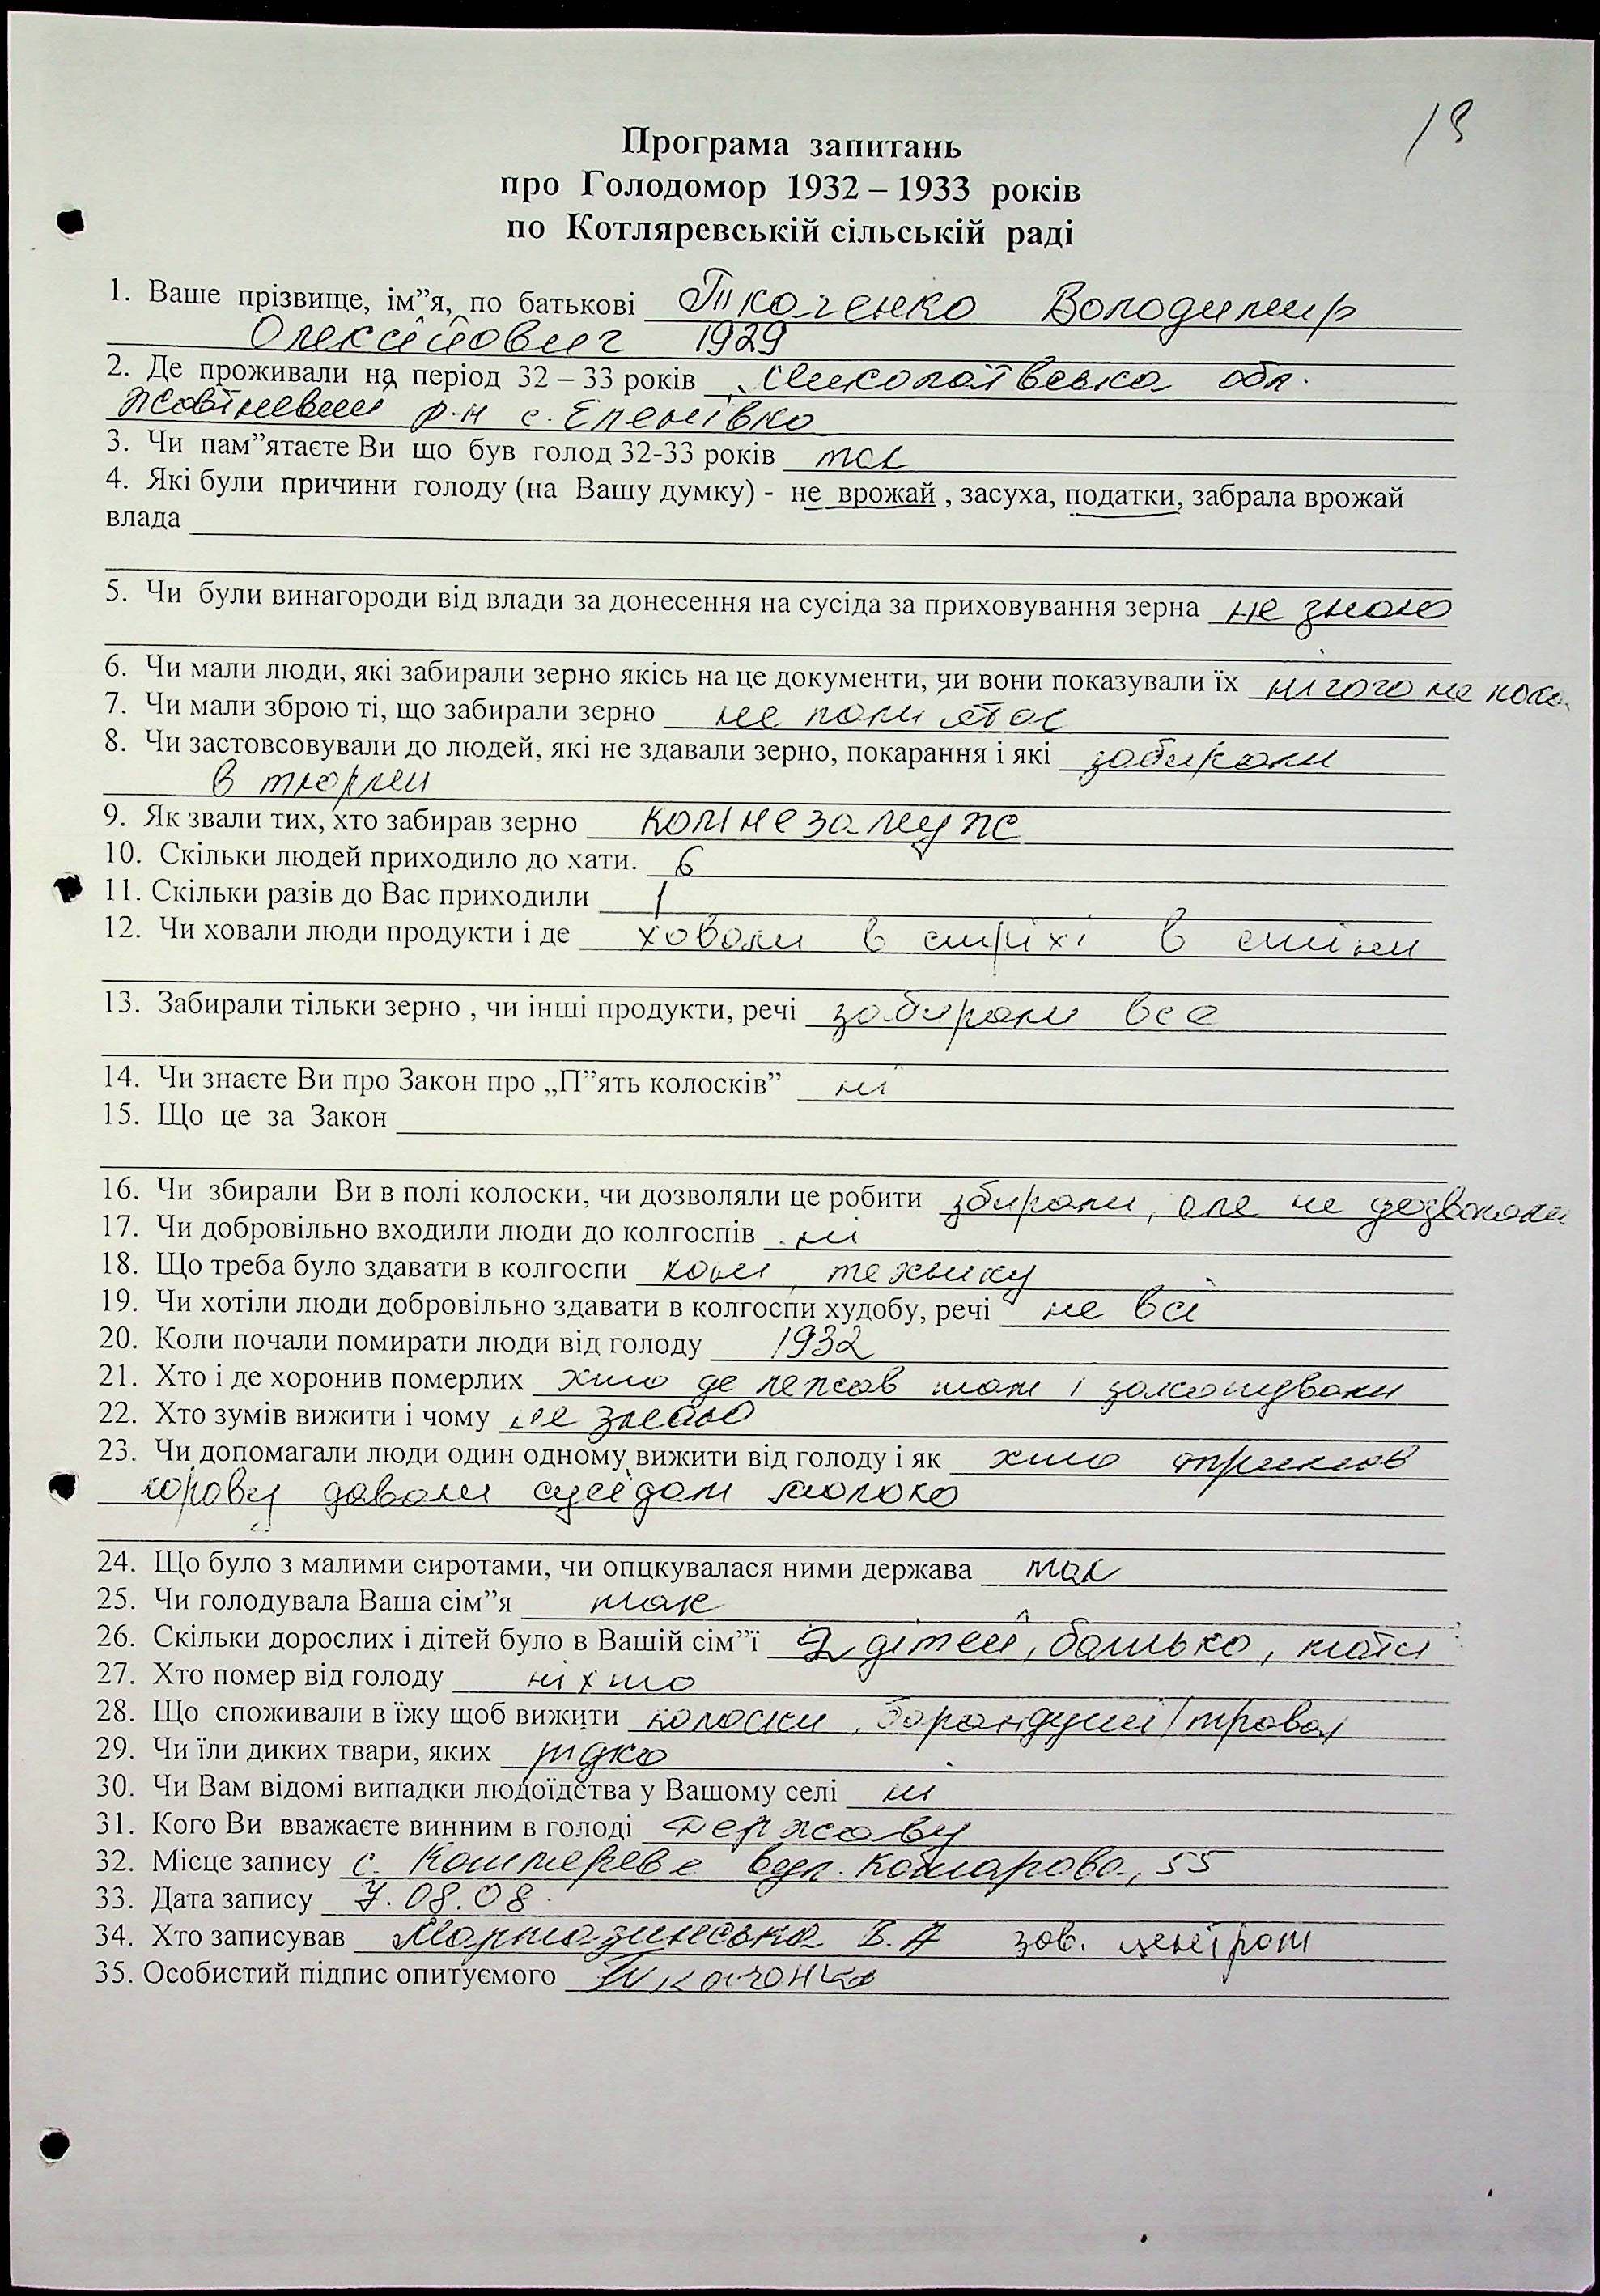 13
Програма запитань
про Голодомор 1932 – 1933 років
по Котляревській сільській раді
1. Ваше прізвище, ім”я, по батькові Ткаченко Володимир
Олексійович 1929
2. Де проживали на період 32 – 33 років Миколаївська обл.
Жовтневий р-н с. Еленівка
3. Чи пам”ятаєте Ви що був голод 32-33 років так
4. Які були причини голоду (на Вашу думку) - не врожай , засуха, податки, забрала врожай
влада
5. Чи були винагороди від влади за донесення на сусіда за приховування зерна не знаю
6. Чи мали люди, які забирали зерно якісь на це документи, чи вони показували їх нічого не пока
7. Чи мали зброю ті, що забирали зерно не памятає
8. Чи застовсовували до людей, які не здавали зерно, покарання і які забирали
в тюрми
9. Як звали тих, хто забирав зерно
10. Скільки людей приходило до хати. 6
11. Скільки разів до Вас приходили 1
12. Чи ховали люди продукти і де ховали в стріхі в стіни
13. Забирали тільки зерно , чи інші продукти, речі забирали все
14. Чи знаєте Ви про Закон про „П”ять колосків” ні
15. Що це за Закон
16. Чи збирали Ви в полі колоски, чи дозволяли це робити збирали, але не дозволяли
17. Чи добровільно входили люди до колгоспів ні
18. Що треба було здавати в колгоспи коні, техніку
19. Чи хотіли люди добровільно здавати в колгоспи худобу, речі не всі
20. Коли почали помирати люди від голоду 1932
21. Хто і де хоронив померлих хто де лежав там і закопували
22. Хто зумів вижити і чому не знаю
23. Чи допомагали люди один одному вижити від голоду і як хто тримав
корову давали сусідам молоко
24. Що було з малими сиротами, чи опцкувалася ними держава так
25. Чи голодувала Ваша сім”я так
26. Скільки дорослих і дітей було в Вашій сім”ї 2 дітей, батько, мати
27. Хто помер від голоду ніхто
28. Що споживали в їжу щоб вижити колоски, (трава)
29. Чи їли диких твари, яких рідко
30. Чи Вам відомі випадки людоїдства у Вашому селі ні
31. Кого Ви вважаєте винним в голоді державу
32. Місце запису с. вул. Комарова, 55
33. Дата запису 7.08.08
34. Хто записував В. А зав. центром
35. Особистий підпис опитуємого Ткаченко